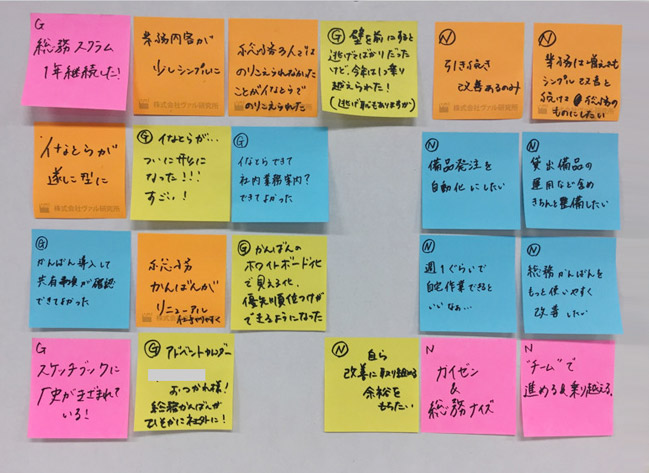 G
総務スクラム
1年継続した!
業務内容が
少しシンプルに
総務3人では
のりこえられなかった
ことがイなとらで
のりこえられた
G
壁を前にすると
逃げてばかりだった
けど、今年は1つ乗り
越えられた!
(逃げ恥もありますが)
N
引き続き
改善あるのみ
N
業務は増えても
シンプルで改善と
続ける 総務の
ものにしたい
株式会社ヴァル研究所
イなとらが
遂に型に
株式会社ヴァル研究所
G
イなとらが…
ついに形に
なった!!!
すごい!
G
イなとらできて
社内業務案内?
できてよかった
N
備品発注を
自動化にしたい
N
貸出備品の
運用など含め
きちんと整備したい
G
かんばん導入して
共有事項が確認
できてよかった
総務
かんばんが
リニューアル
G
かんばんの
ホワイトボード化
で見える化、
優先順位つけが
できるようになった
N
週1ぐらいで
自宅作業できると
いいなぁ…
N
総務かんばんを
もっと使いやすく
改善したい
G
スケッチブックに
歴史がきざまれて
いる!
G
アドベントカレンダー
おつかれ様!
総務かんばんが
ひそかに社外に!
N
自ら
改善に取り組める
余裕を
もちたい
N
カイゼン
&
総務ナイズ
N
"チーム"で
進める&乗り越える。